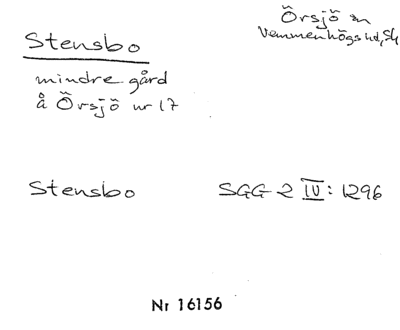 Örsjö sn
Vemmenhögs hd, Sk
Stensbo
mindre gård
å Örsjö nr 17
Stensbo SGG 2 IV: 1296
Nr 16156